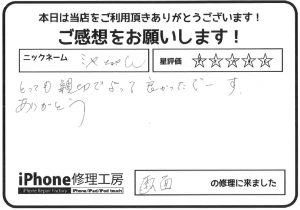 本日は当店をご利用頂きありがとうございます！
ご感想をお願いします！
ニックネーム
星評価 ☆☆☆☆☆
とっても親切でよって良かったでーす。
ありがとう
iPhone修理工房
iPhone Repair Factory iPhone/iPad/iPod touch
画面 の修理に来ました